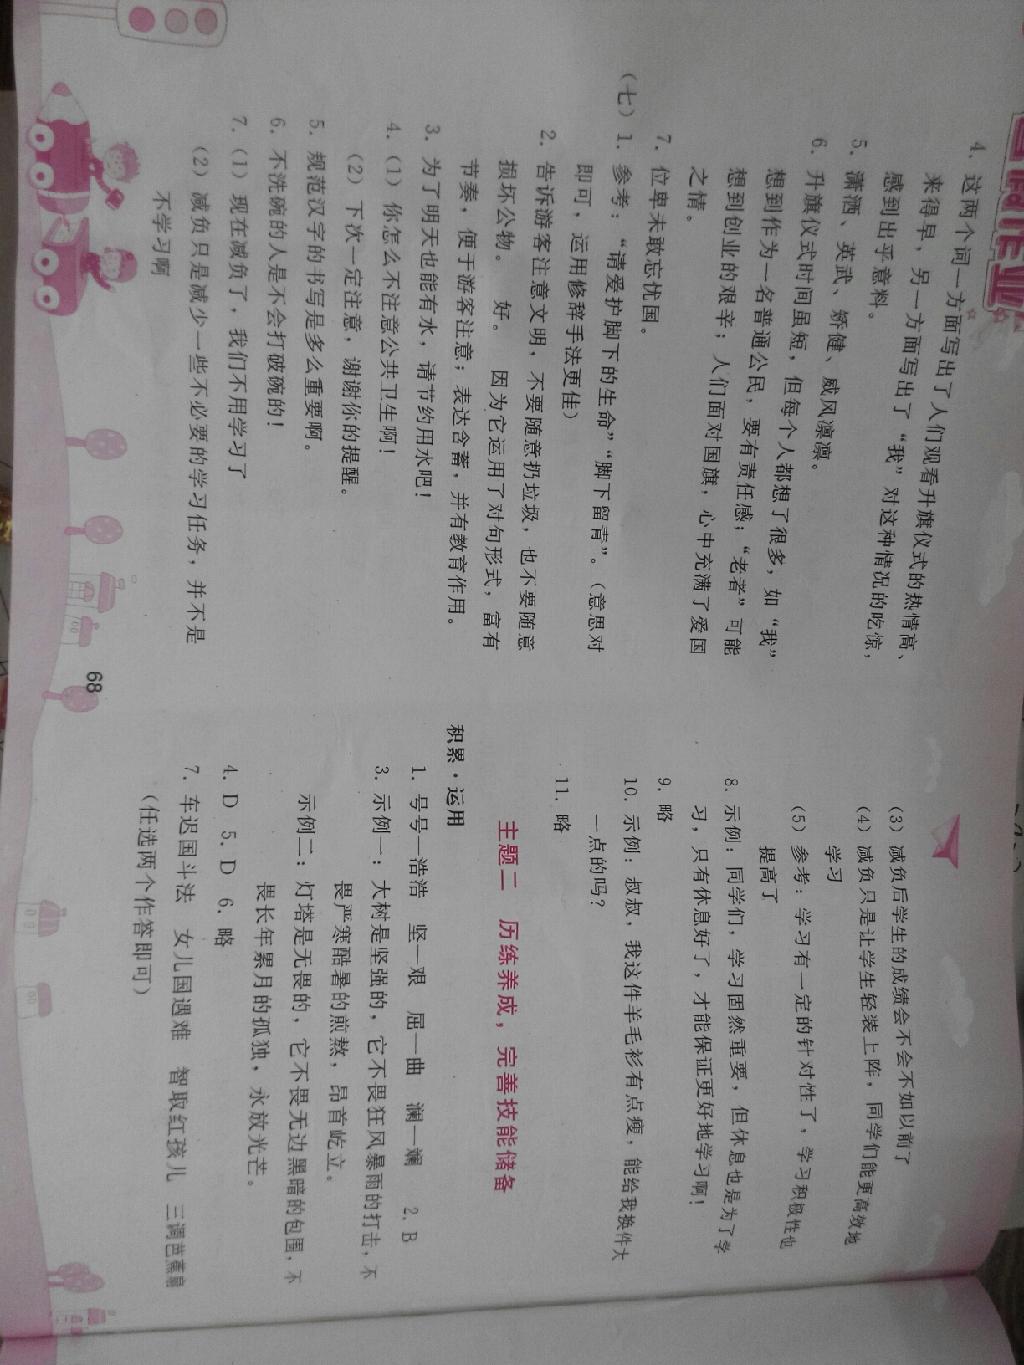 4. 这两个词一方面写出了人们观看升旗仪式的热情高、
来得早，另一方面写出了“我”对这种情况的吃惊，
感到出乎意料。
5. 潇洒、英武、矫健、威风凛凛。
6. 升旗仪式时间虽短，但每个人都想了很多，如“我”
想到作为一名普通公民，要有责任感；“老者”可能
想到创业的艰辛；人们面对国旗，心中充满了爱国
之情。
7. 位卑未敢忘忧国。
（七）1. 参考：“请爱护脚下的生命”“脚下留青”。（意思对
即可，运用修辞手法更佳）
2. 告诉游客注意文明，不要随意扔垃圾，也不要随意
损坏公物。 好。 因为它运用了对句形式，富有
节奏，便于游客注意；表达含蓄，并有教育作用。
3. 为了明天也能有水，请节约用水吧！
4. （1）你怎么不注意公共卫生啊！
（2）下次一定注意，谢谢你的提醒。
5. 规范汉字的书写是多么重要啊。
6. 不洗碗的人是不会打破碗的！
7. （1）现在减负了，我们不用学习了
（2）减负只是减少一些不必要的学习任务，并不是
不学习啊
68
（3）减负后学生的成绩会不会不如以前了
（4）减负只是让学生轻装上阵，同学们能更高效地
学习
（5）参考：学习有一定的针对性了，学习积极性也
提高了
8. 示例：同学们，学习固然重要，但休息也是为了学
习，只有休息好了，才能保证更好地学习啊！
9. 略
10. 示例：叔叔，我这件羊毛衫有点瘦，能给我换件大
一点的吗？
11. 略
主题二 历练养成，完善技能储备
积累·运用
1. 号号—浩浩 坚—艰 屈—曲 澜—斓 2. B
3. 示例一：大树是坚强的，它不畏狂风暴雨的打击，不
畏严寒酷暑的煎熬，昂首屹立。
示例二：灯塔是无畏的，它不畏无边黑暗的包围，不
畏长年累月的孤独，永放光芒。
4. D 5. D 6. 略
7. 车迟国斗法 女儿国遇难 智取红孩儿 三调芭蕉扇
（任选两个作答即可）